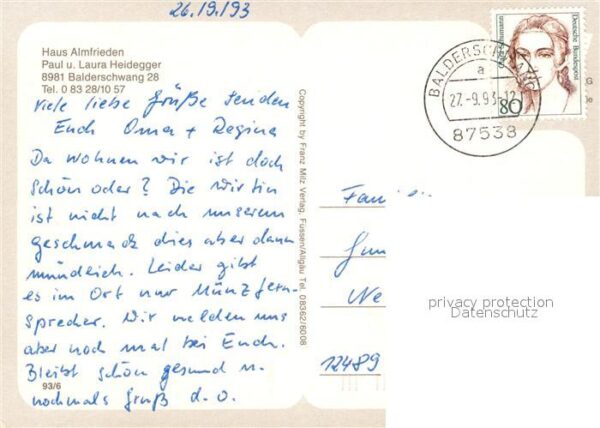 26.19.193
Haus Almfrieden
Paul u. Laura Heidegger
8981 Balderschwang 28
Tel. 0 83 28/10 57
viele liebe Grüße senden
Euch Oma + Regina
Da wohnen wir ist doch
schön oder? Die Wirtin
ist nicht nach unserem
geschmack dies aber dann
mündlich. Leider gibt
es im Ort nur Münzfern-
sprecher. Wir melden uns
aber noch mal bei Euch.
Bleibt schön gesund u.
nochmals Gruß d. O.
93/6
Copyright by Franz Milz Verlag, Füssen/Allgäu Tel. 08362/6008
BALDERSCHWANG
a
27.-9.93-12
87538
Deutsche Bundespost
Clara Schumann
80
Fam
Gun
Ne
12489
privacy protection
Datenschutz